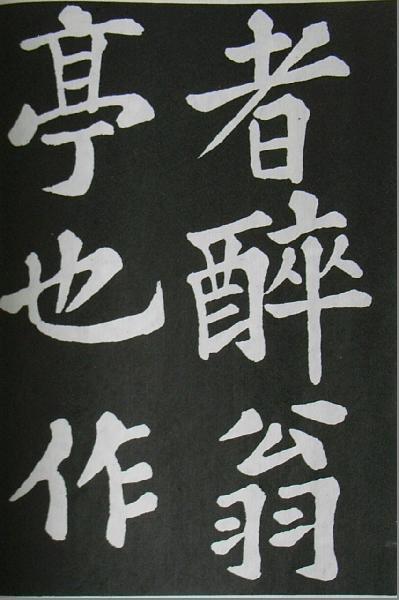 者醉翁
亭也作